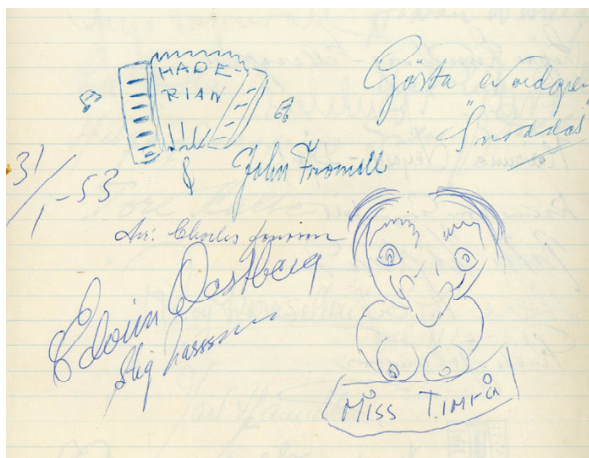 HADE-
RIAN
Gösta Nordgren
"Snoddas"
John Fromell
31/1-53
Arr: Charles
Edvin Oestberg
Stig
MISS TIMRÅ